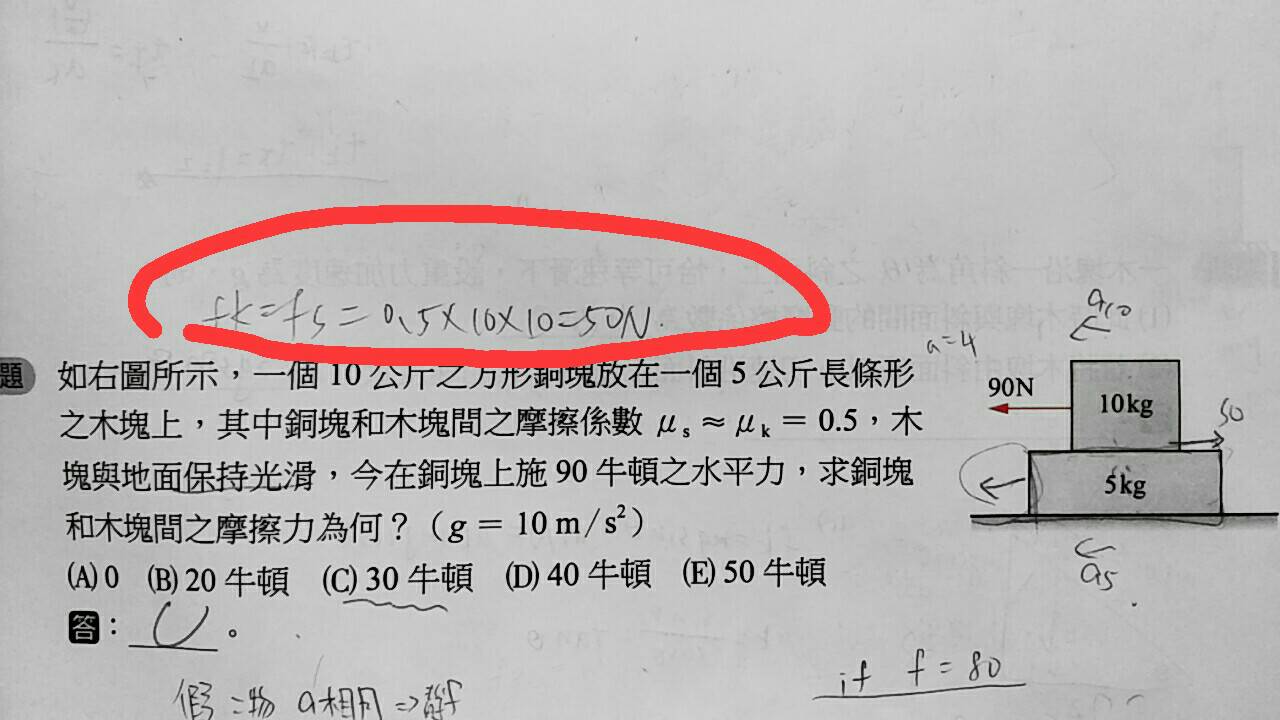 fk=fs=0.5×10×10=50N.
a=4
a10
題 如右圖所示，一個 10 公斤之方形銅塊放在一個 5 公斤長條形
之木塊上，其中銅塊和木塊間之摩擦係數 μs ≈ μk = 0.5，木
塊與地面保持光滑，今在銅塊上施 90 牛頓之水平力，求銅塊
和木塊間之摩擦力為何？（g = 10 m/s²）
(A) 0 (B) 20 牛頓 (C) 30 牛頓 (D) 40 牛頓 (E) 50 牛頓
答：C。
90N
10kg
50
5kg
a5
假二物 a相同⇒靜f
if f=80